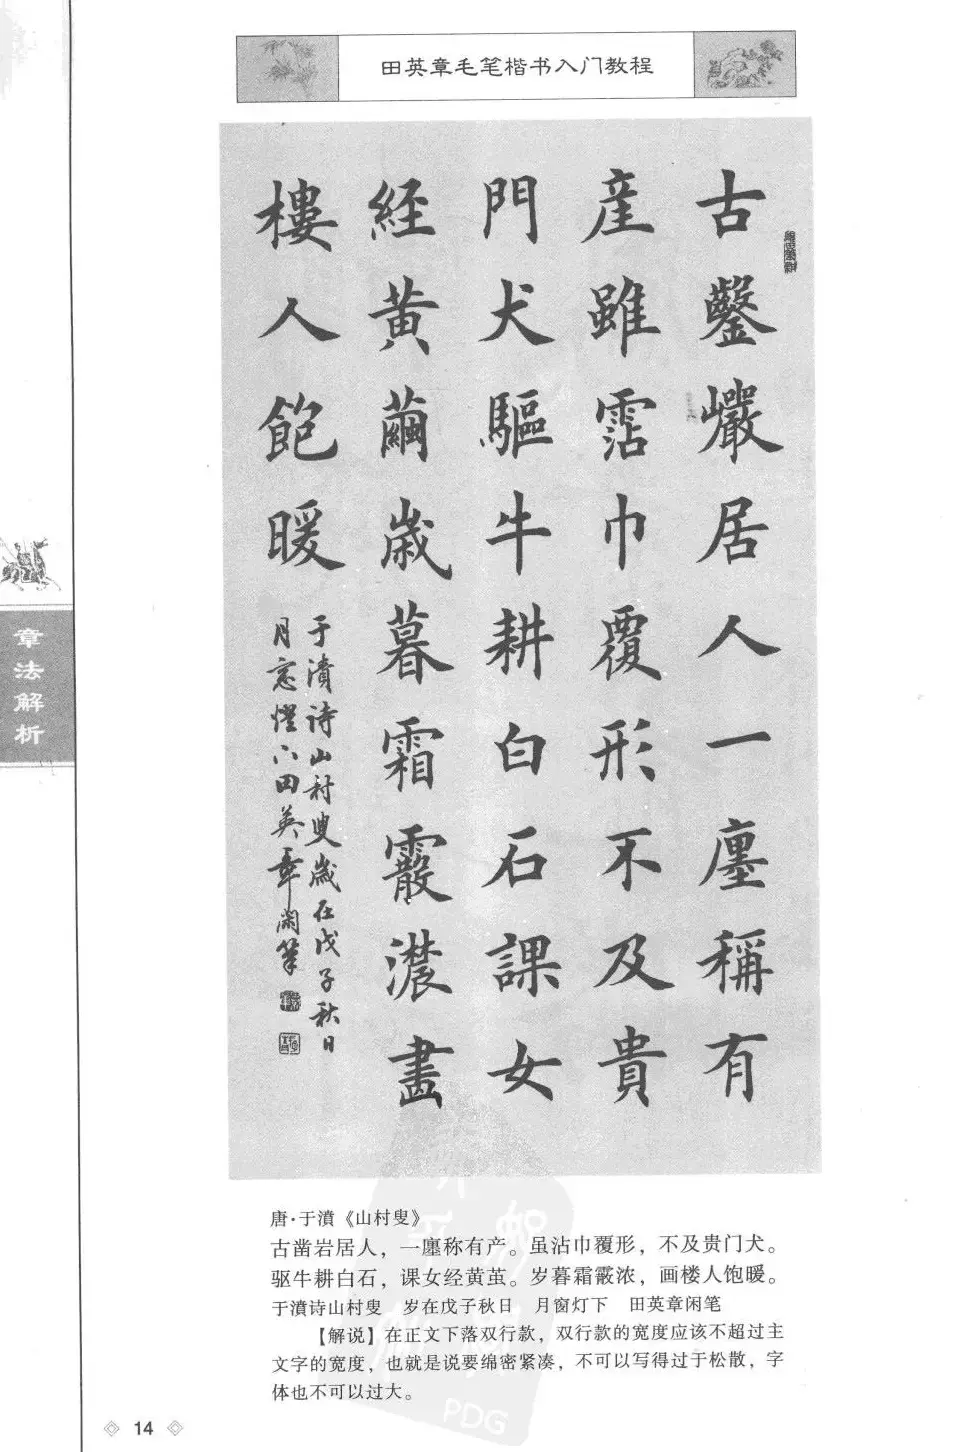 田英章毛笔楷书入门教程
古鑿巖居人一廛稱有
産雖霑巾覆形不及貴
門犬驅牛耕白石課女
經黄繭歲暮霜霰濃畫
樓人飽暖
于濆诗山村叟歲在戊子秋日
月窓燈下田英章閑筆
章法解析
唐·于濆《山村叟》
古凿岩居人，一廛称有产。虽沾巾覆形，不及贵门犬。
驱牛耕白石，课女经黄茧。岁暮霜霰浓，画楼人饱暖。
于濆诗山村叟 岁在戊子秋日 月窗灯下 田英章闲笔
【解说】在正文下落双行款，双行款的宽度应该不超过主
文字的宽度，也就是说要绵密紧凑，不可以写得过于松散，字
体也不可以过大。
PDG
14